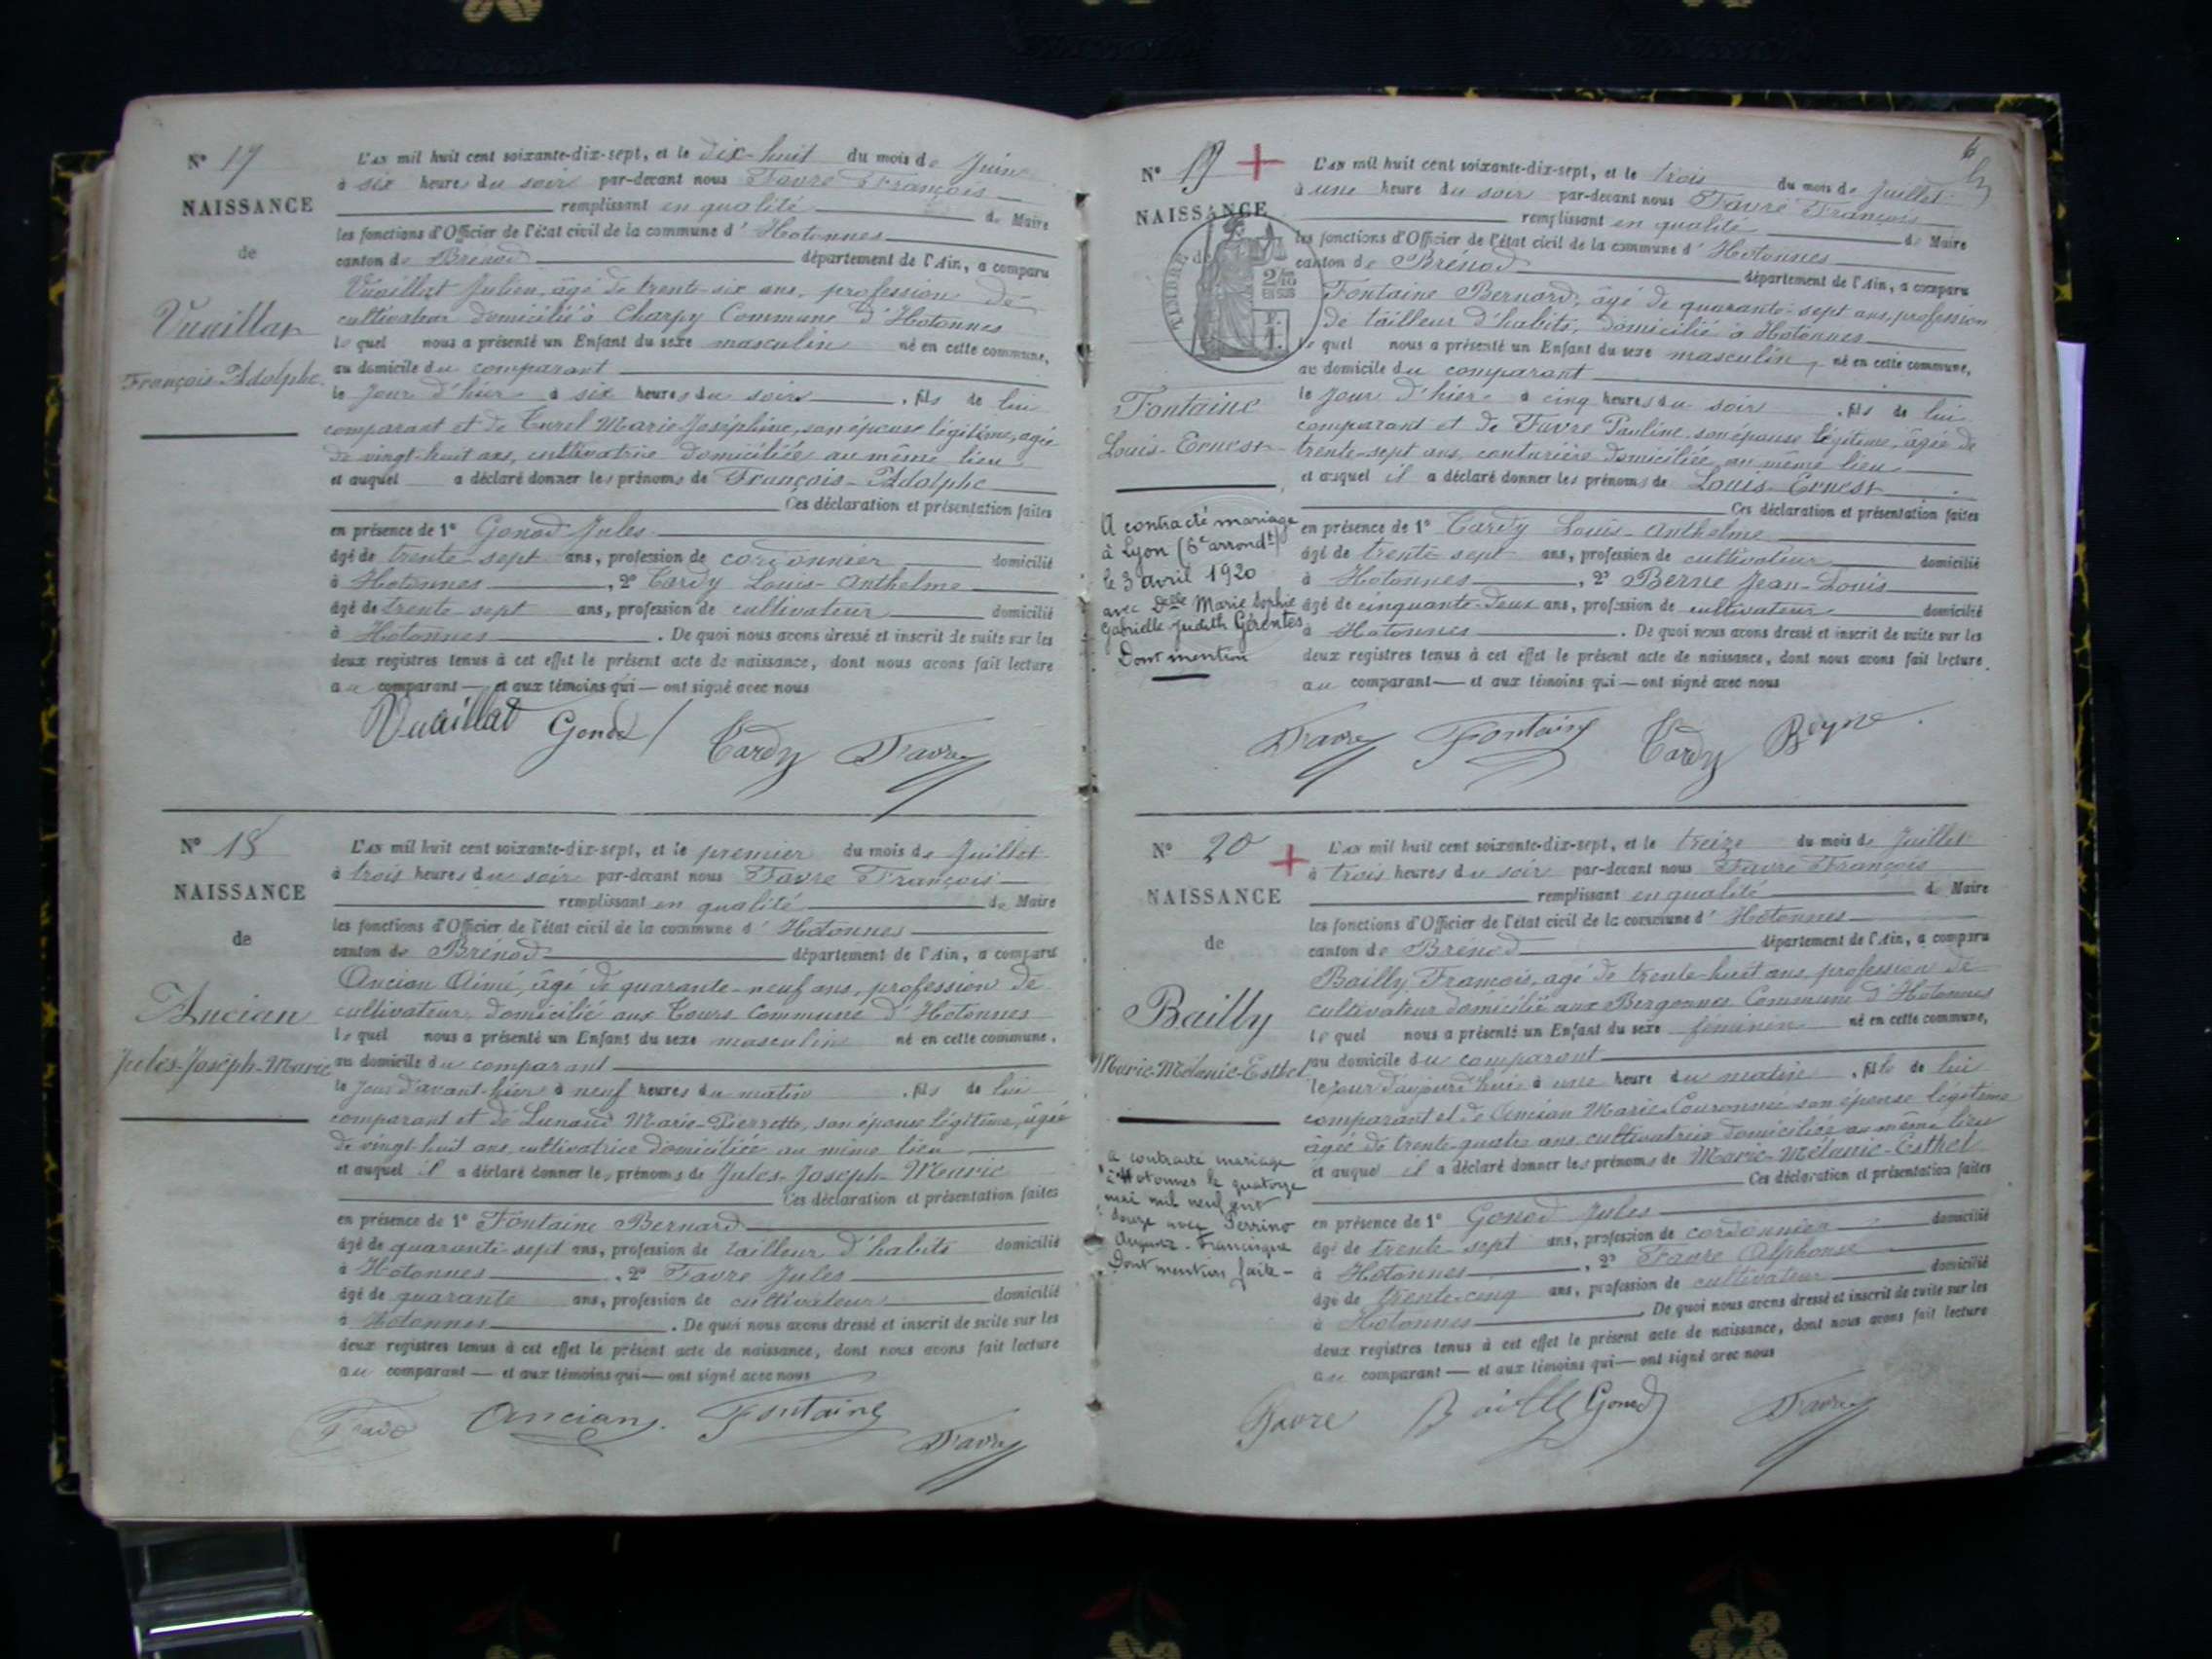 N° 17
NAISSANCE
de
Vuaillat
François Adolphe
L'an mil huit cent soixante-dix-sept, et le dix-huit du mois de Juin
à six heures du soir par-devant nous Favre François
remplissant en qualité de Maire
les fonctions d'Officier de l'état civil de la commune d' Hotonnes
canton de Brénod département de l'Ain, a comparu
Vuaillat Julien, âgé de trente-six ans, profession de
cultivateur domicilié à Charpy Commune d'Hotonnes
lequel nous a présenté un Enfant du sexe masculin né en cette commune,
au domicile du comparant
le jour d'hier à six heures du soir, fils de lui
comparant et de Marie Joséphine, son épouse légitime, âgée
de vingt-huit ans, cultivatrice domiciliée au même lieu
et auquel a déclaré donner les prénoms de François-Adolphe
Ces déclaration et présentation faites
en présence de 1° Gonod Jules
âgé de trente-sept ans, profession de cordonnier domicilié
à Hotonnes, 2° Tardy Louis-Anthelme
âgé de trente-sept ans, profession de cultivateur domicilié
à Hotonnes. De quoi nous avons dressé et inscrit de suite sur les
deux registres tenus à cet effet le présent acte de naissance, dont nous avons fait lecture
au comparant — et aux témoins qui — ont signé avec nous
Vuaillat Gonod Tardy Favre
N° 18
NAISSANCE
de
Ancian
Jules-Joseph-Marie
L'an mil huit cent soixante-dix-sept, et le premier du mois de Juillet
à trois heures du soir par-devant nous Favre François
remplissant en qualité de Maire
les fonctions d'Officier de l'état civil de la commune d' Hotonnes
canton de Brénod département de l'Ain, a comparu
Ancian Aimé, âgé de quarante-neuf ans, profession de
cultivateur, domicilié aux Tours Commune d'Hotonnes
lequel nous a présenté un Enfant du sexe masculin né en cette commune,
au domicile du comparant
le jour d'avant-hier à neuf heures du matin, fils de lui
comparant et de Marie-Pierrette, son épouse légitime, âgée
de vingt-huit ans, cultivatrice domiciliée au même lieu
et auquel il a déclaré donner les prénoms de Jules-Joseph-Marie
Ces déclaration et présentation faites
en présence de 1° Fontaine Bernard
âgé de quarante-sept ans, profession de tailleur d'habits domicilié
à Hotonnes, 2° Favre Jules
âgé de quarante ans, profession de cultivateur domicilié
à Hotonnes. De quoi nous avons dressé et inscrit de suite sur les
deux registres tenus à cet effet le présent acte de naissance, dont nous avons fait lecture
au comparant — et aux témoins qui — ont signé avec nous
Favre Ancian Fontaine Favre
6
N° 19
NAISSANCE
de
TIMBRE
Fontaine
Louis-Ernest
A contracté mariage
à Lyon (6e arrondt)
le 3 avril 1920
avec Delle Marie Sophie
Gabrielle Judith Gerentes
Dont mention
L'an mil huit cent soixante-dix-sept, et le trois du mois de Juillet
à une heure du soir par-devant nous Favre François
remplissant en qualité de Maire
les fonctions d'Officier de l'état civil de la commune d' Hotonnes
canton de Brénod département de l'Ain, a comparu
Fontaine Bernard, âgé de quarante-sept ans, profession
de tailleur d'habits, domicilié à Hotonnes
lequel nous a présenté un Enfant du sexe masculin, né en cette commune,
au domicile du comparant
le jour d'hier à cinq heures du soir, fils de lui
comparant et de Favre Pauline, son épouse légitime, âgée de
trente-sept ans, couturière domiciliée au même lieu
et auquel il a déclaré donner les prénoms de Louis-Ernest
Ces déclaration et présentation faites
en présence de 1° Tardy Louis-Anthelme
âgé de trente-sept ans, profession de cultivateur domicilié
à Hotonnes, 2° Berne Jean-Louis
âgé de cinquante-deux ans, profession de cultivateur domicilié
à Hotonnes. De quoi nous avons dressé et inscrit de suite sur les
deux registres tenus à cet effet le présent acte de naissance, dont nous avons fait lecture
au comparant — et aux témoins qui — ont signé avec nous
Favre Fontaine Tardy
N° 20
NAISSANCE
de
Bailly
Marie-Mélanie-Esthel
a contracté mariage
à Hotonnes le quatorze
mai mil neuf cent
douze avec Perrino
Francisque
Dont mention faite
L'an mil huit cent soixante-dix-sept, et le treize du mois de Juillet
à trois heures du soir par-devant nous Favre François
remplissant en qualité de Maire
les fonctions d'Officier de l'état civil de la commune d' Hotonnes
canton de Brénod département de l'Ain, a comparu
Bailly François, âgé de trente-huit ans, profession de
cultivateur domicilié aux Bergonnes Commune d'Hotonnes
lequel nous a présenté un Enfant du sexe féminin né en cette commune,
au domicile du comparant
le jour d'aujourd'hui à une heure du matin, fille de lui
comparant et de Ancian Marie Couronnée son épouse légitime
âgée de trente-quatre ans cultivatrice domiciliée au même lieu
et auquel il a déclaré donner les prénoms de Marie-Mélanie-Esthel
Ces déclaration et présentation faites
en présence de 1° Gonod Jules
âgé de trente-sept ans, profession de cordonnier domicilié
à Hotonnes, 2° Favre Alphonse
âgé de trente-cinq ans, profession de cultivateur domicilié
à Hotonnes. De quoi nous avons dressé et inscrit de suite sur les
deux registres tenus à cet effet le présent acte de naissance, dont nous avons fait lecture
au comparant — et aux témoins qui — ont signé avec nous
Favre Bailly Gonod Favre